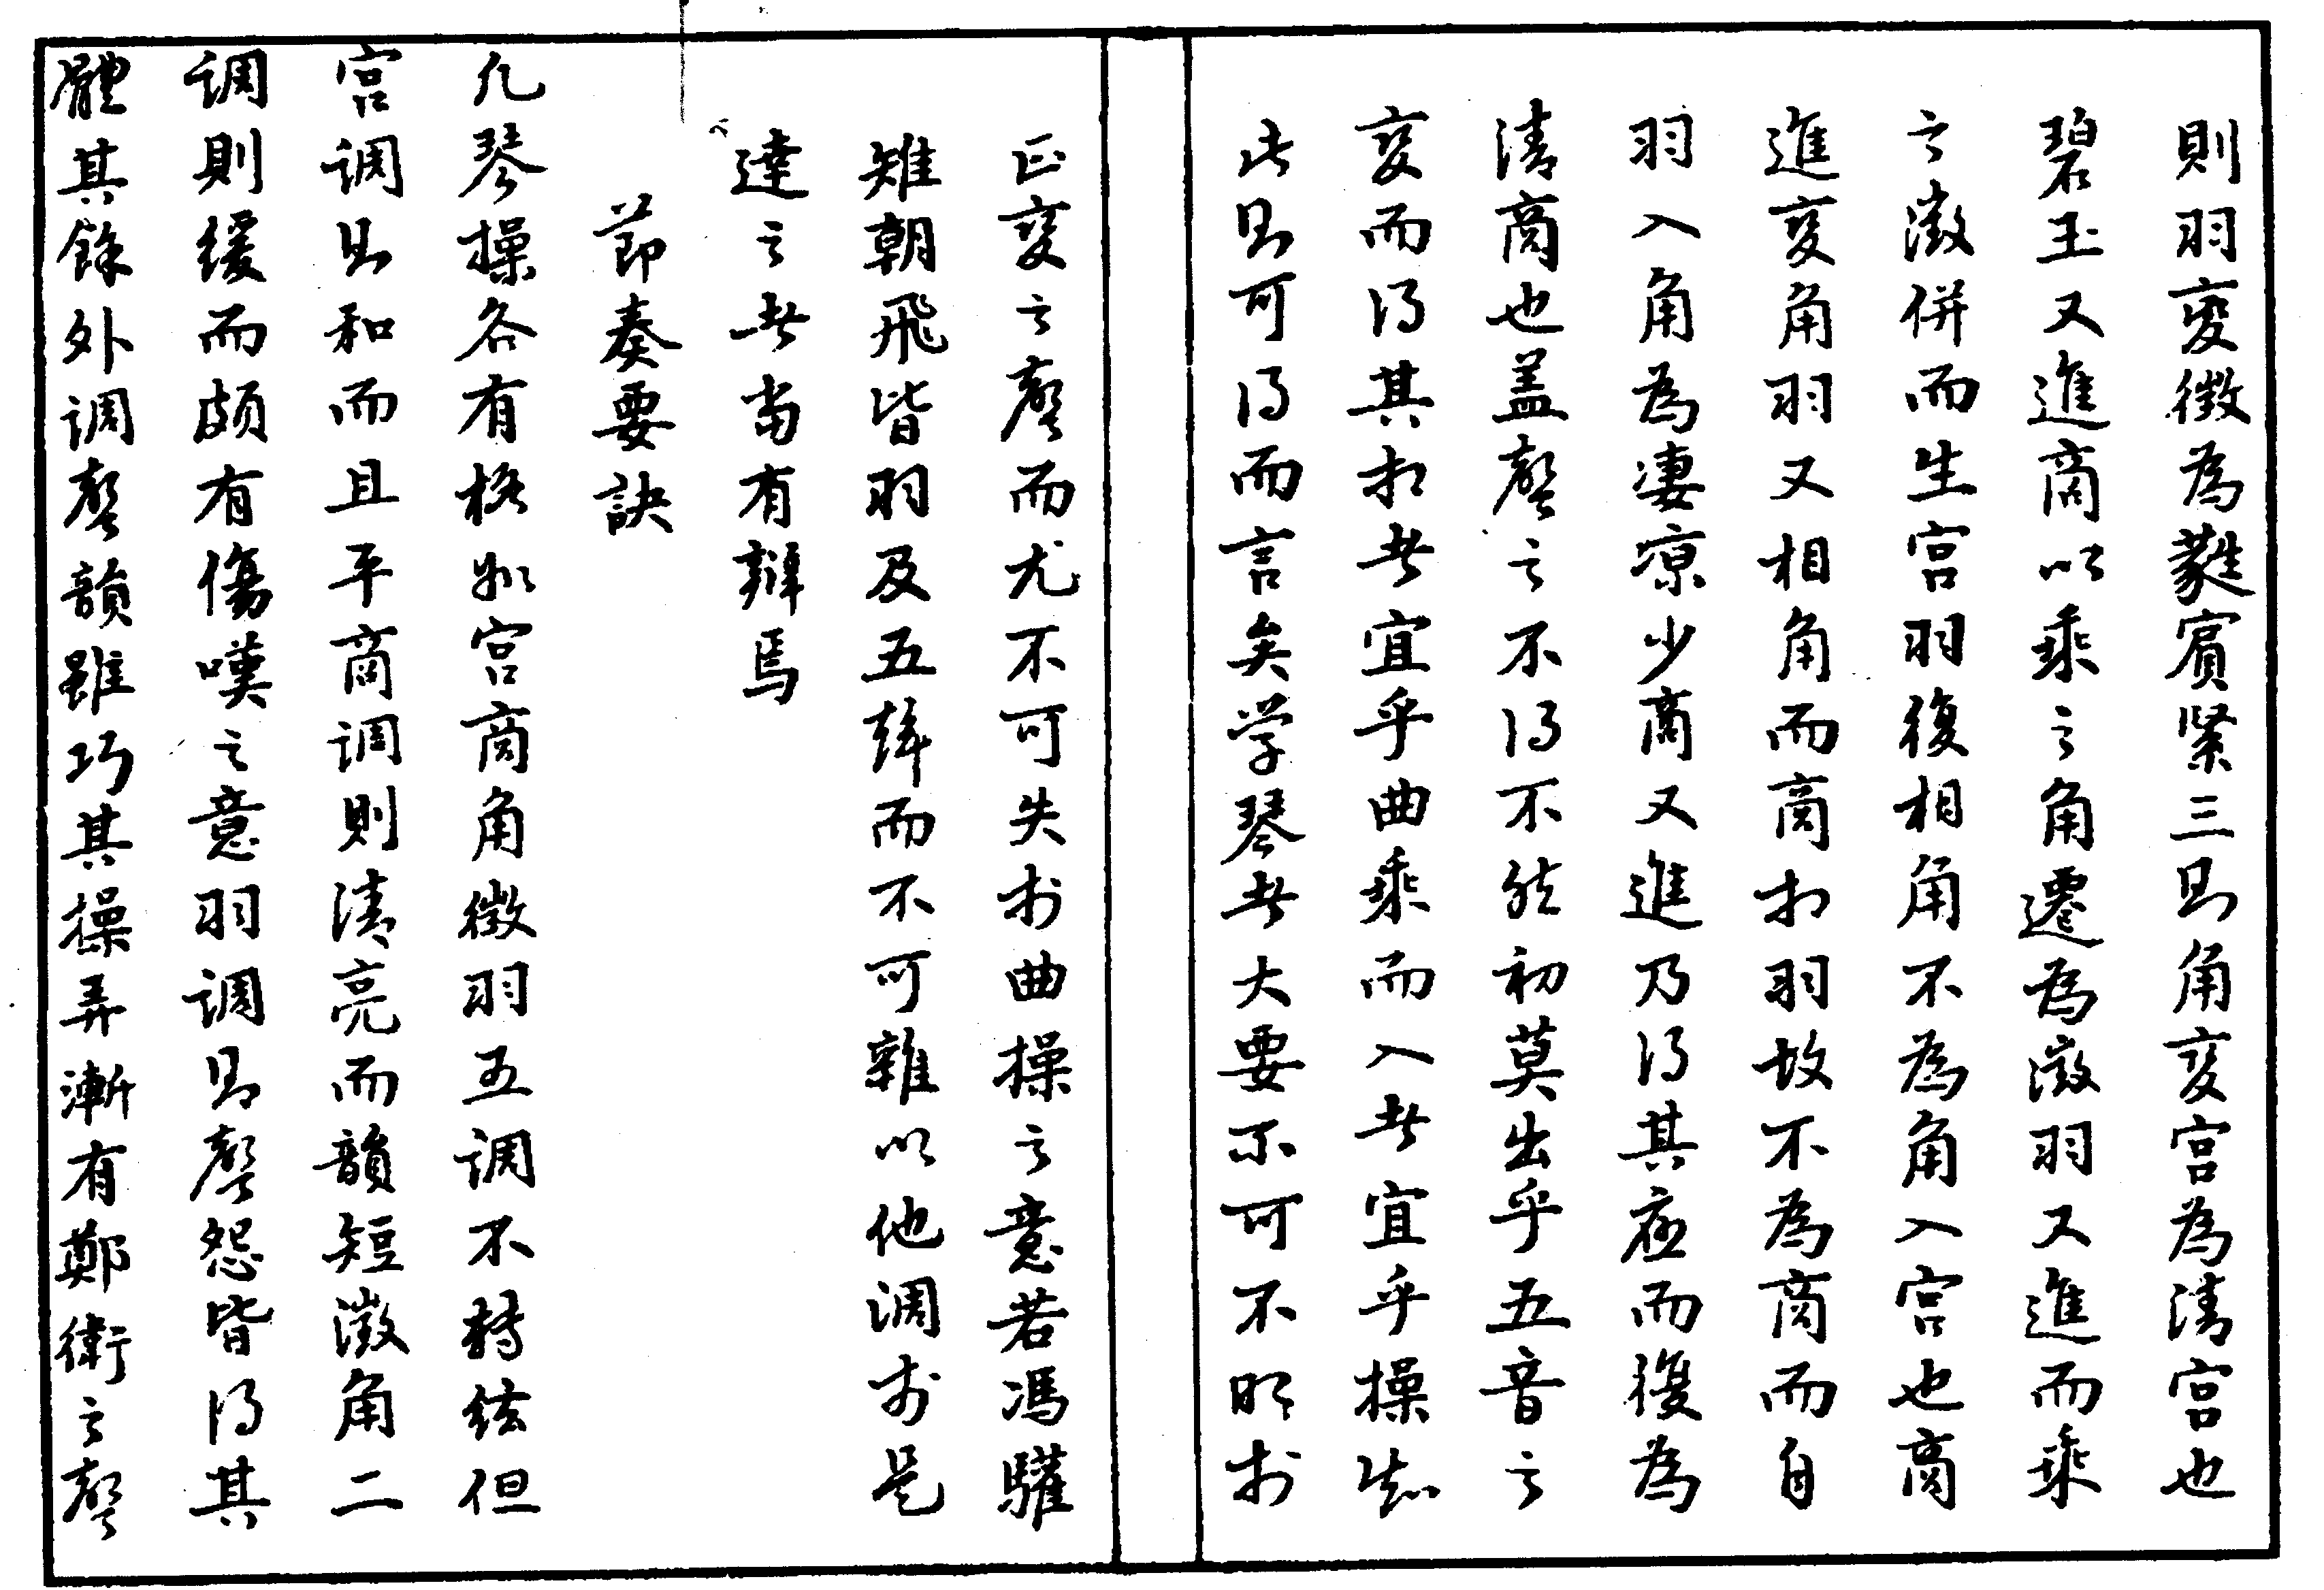 則羽变徵為蕤賓紧三則角变宮為清宮也
碧玉又進商以乘之角遷為徵羽又進而乘
之徵併而生宮羽復相角不為角入宮也商
進变角羽又相角而商扣羽故不為商而自
羽入角為凄凉少商又進乃得其应而復為
清商也盖聲之不得不然初莫出乎五音之
变而得其扣者宜乎曲乘而入者宜乎操知
此則可得而言矣学琴者大要不可不明於
正变之聲而尤不可失於曲操之意若馮驩
雉朝飛皆羽及五聲而不可雜以他调於是
達之者当有辯焉
節奏要訣
凡琴操各有格如宮商角徵羽五调不轉絃但
宮调則和而且平商调則清亮而韻短徵角二
调則缓而頗有傷嘆之意羽调則聲怨皆得其
體其餘外调聲韻雖巧其操弄漸有鄭衛之聲